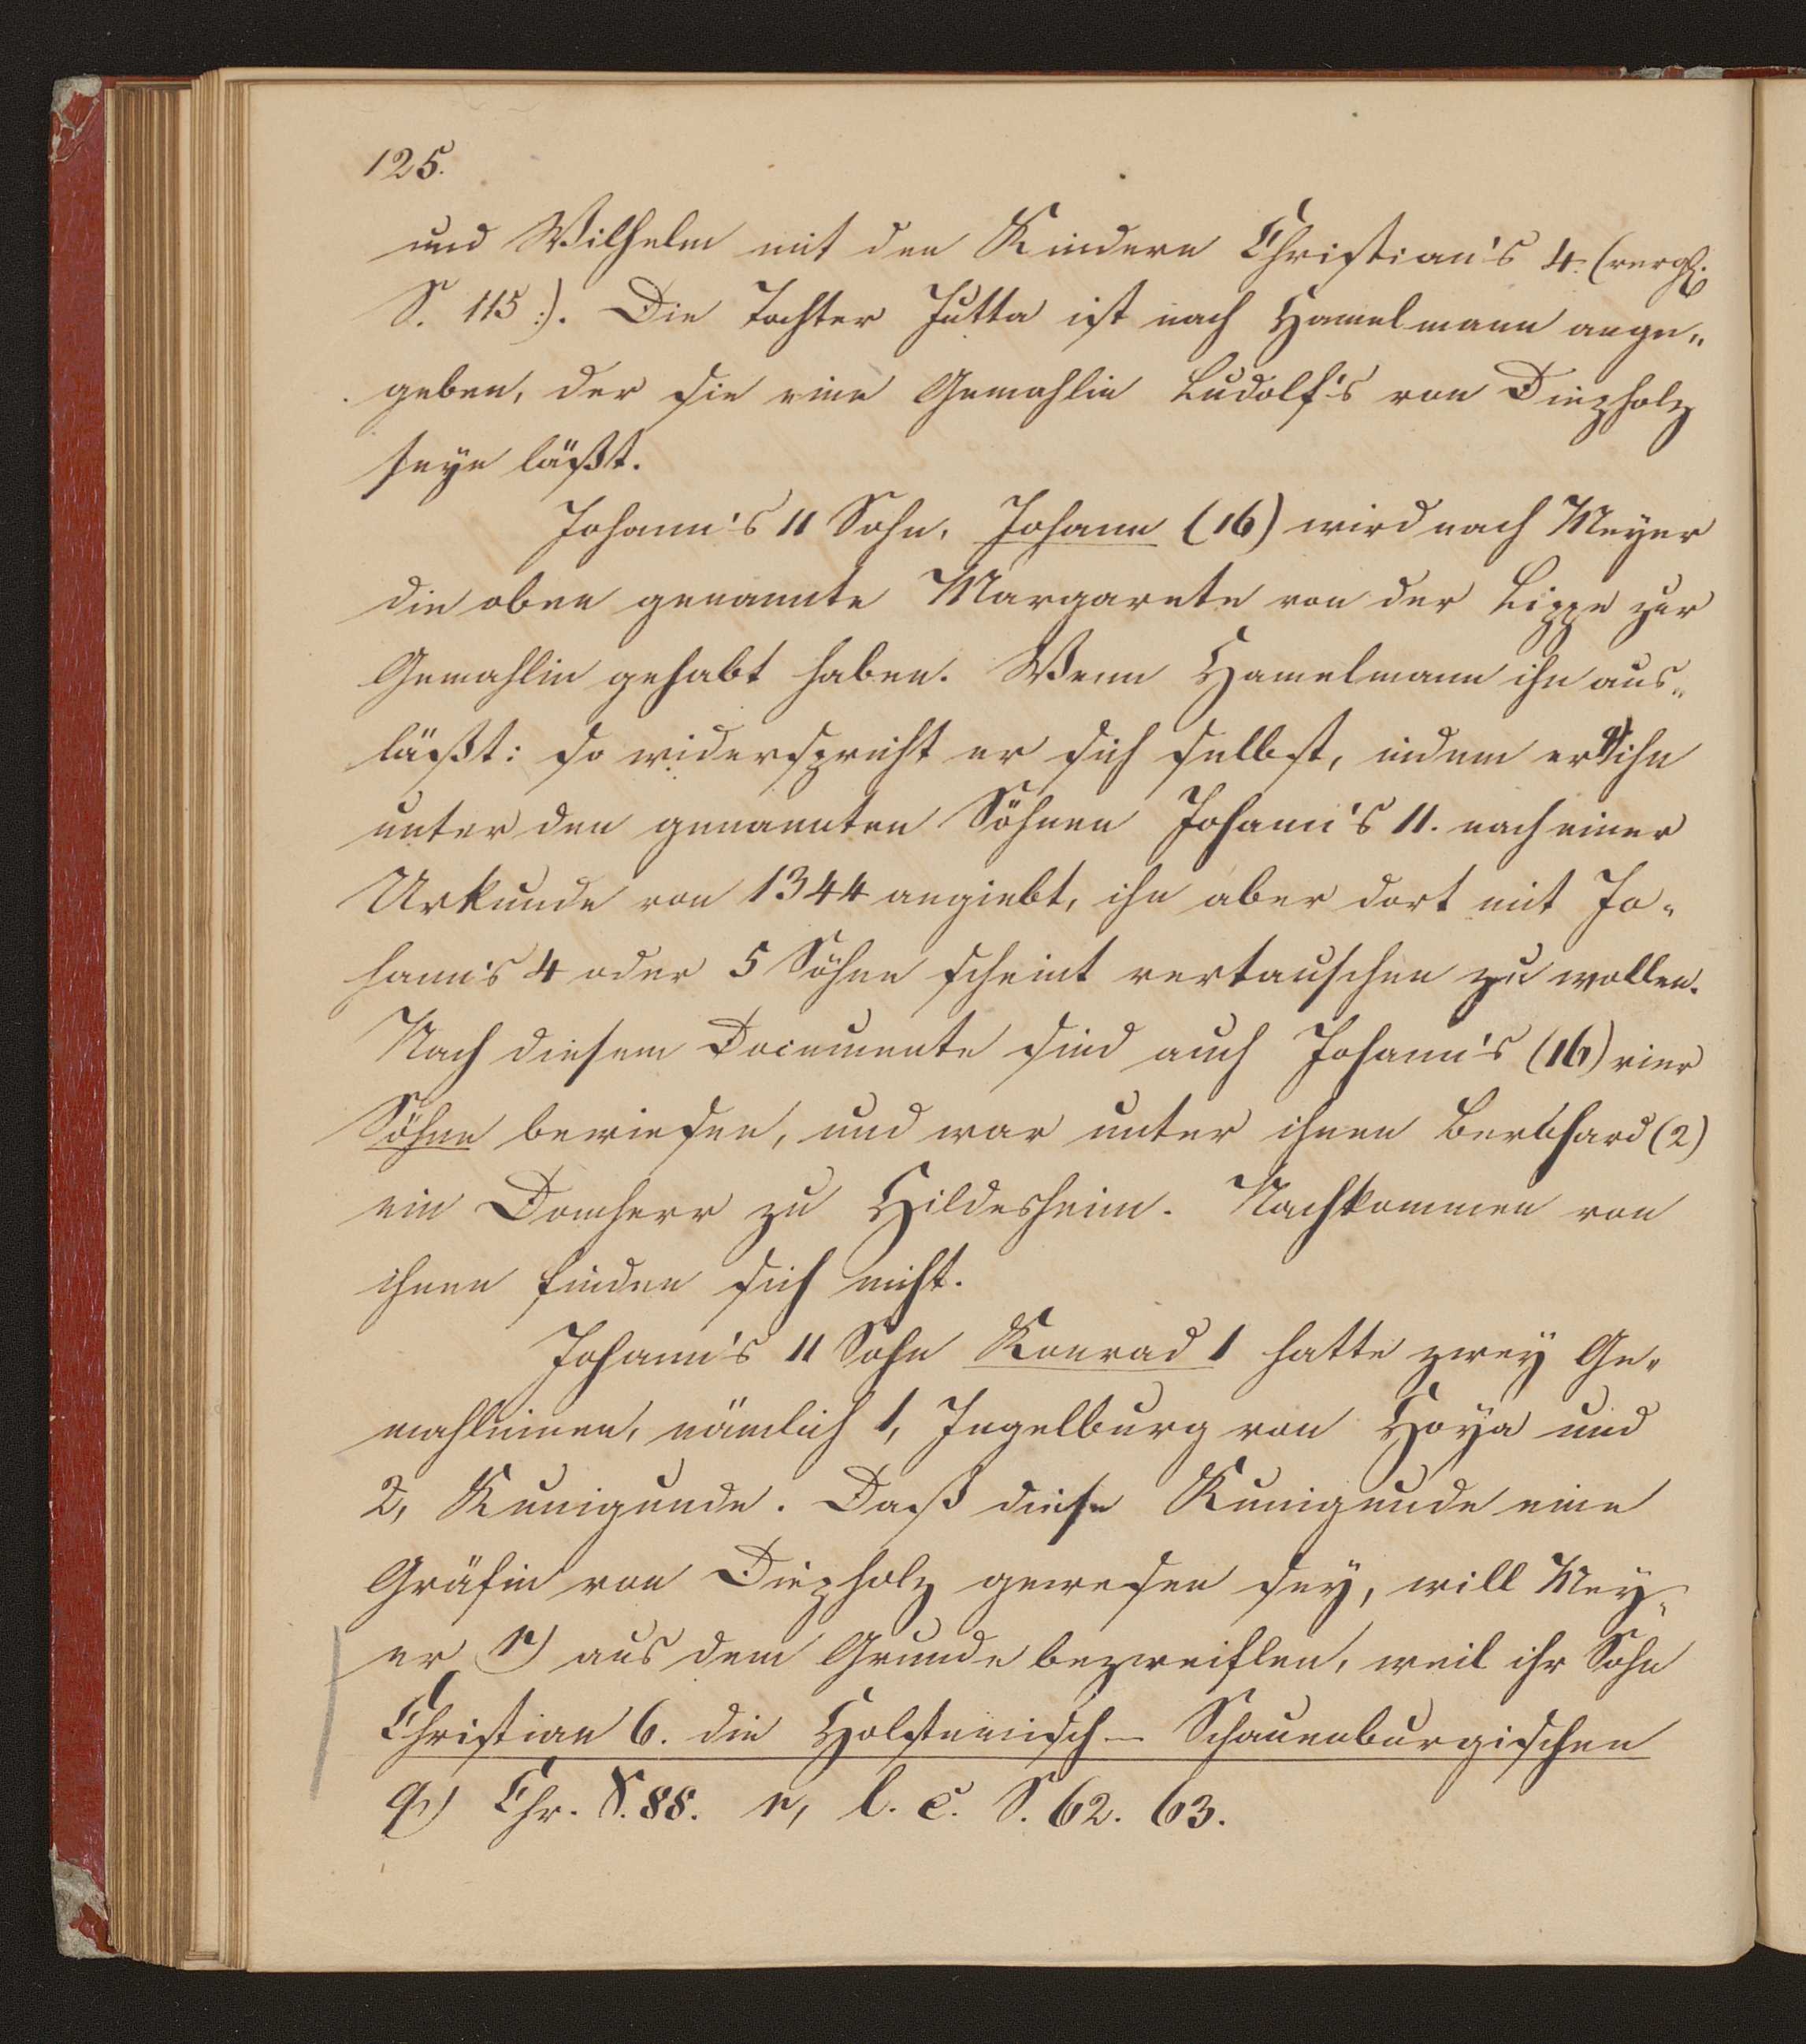 125.
und Wilhelm mit den Kindern Christian's 4. (vergl.
S. 115 :). Die Tochter Jutta ist nach Hamelmann ange-
geben, der sie eine Gemahlin Ludolf's von Diepholz
seyn läßt.
Johann's 11 Sohn, Johann (16) wird nach Meyer
die oben genannte Margarete von der Lippe zur
Gemahlin gehabt haben. Wenn Hamelmann ihn aus-
läßt: so widerspricht er sich selbst, indem er q) ihn
unter den genannten Söhnen Johann's 11. nach einer
Urkunde von 1344 angiebt, ihn aber dort mit Jo-
hann's 4 oder 5 Söhne scheint vertauschen zu wollen.
Nach diesem Documente sind auch Johann's (16) vier
Söhne bewiesen, und war unter ihnen Bernhard (2)
ein Domherr zu Hildesheim. Nachkommen von
ihnen finden sich nicht.
Johann's 11 Sohn Konrad 1 hatte zwey Ge-
mahlinnen, nämlich 1, Ingelburg von Hoya und
2, Kunigunde. Daß diese Kunigunde eine
Gräfin von Diepholz gewesen sey, will Mey-
er r) aus dem Grunde bezweiflen, weil ihr Sohn
Christian 6. die Holsteinisch - Schauenburgischen
q) Chr. S. 88. r, l. c. S. 62. 63.